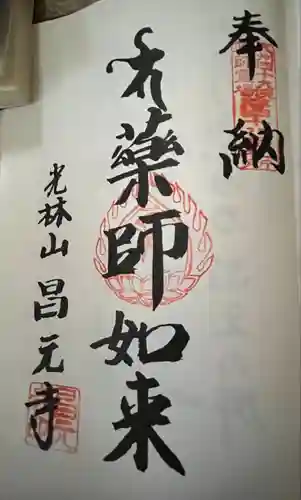 奉納
薬師如来
光林山昌元寺